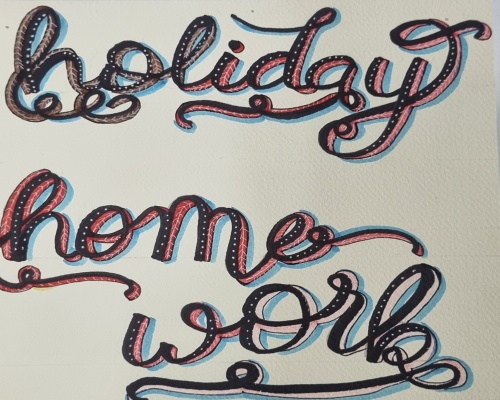 holiday
home
work